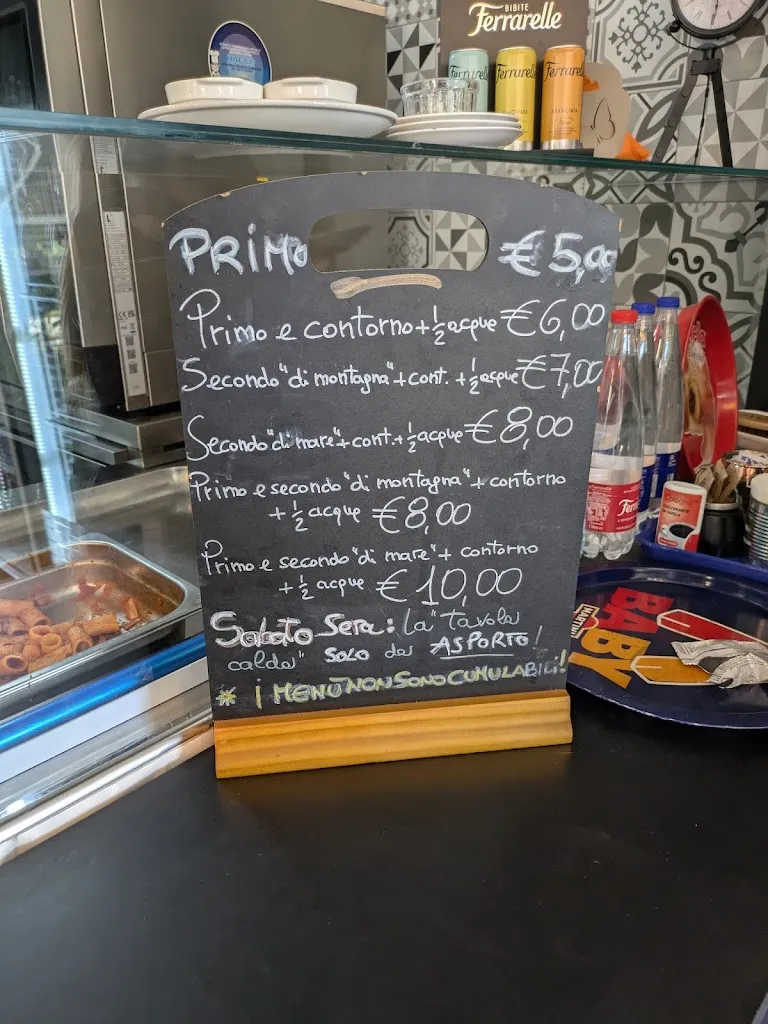 BIBITE
Ferrarelle
Ferrarelle
Ferrarelle
Ferrarelle
PRIMO € 5,00
Primo e contorno + 1/2 acque € 6,00
Secondo "di montagna" + cont. + 1/2 acque € 7,00
Secondo "di mare" + cont. + 1/2 acque € 8,00
Primo e secondo "di montagna" + contorno
+ 1/2 acque € 8,00
Primo e secondo "di mare" + contorno
+ 1/2 acque € 10,00
Sabato Sera: La "tavola
calda" SOLO da ASPORTO!
* I MENÙ NON SONO CUMULABILI!
BABY
MARTINI